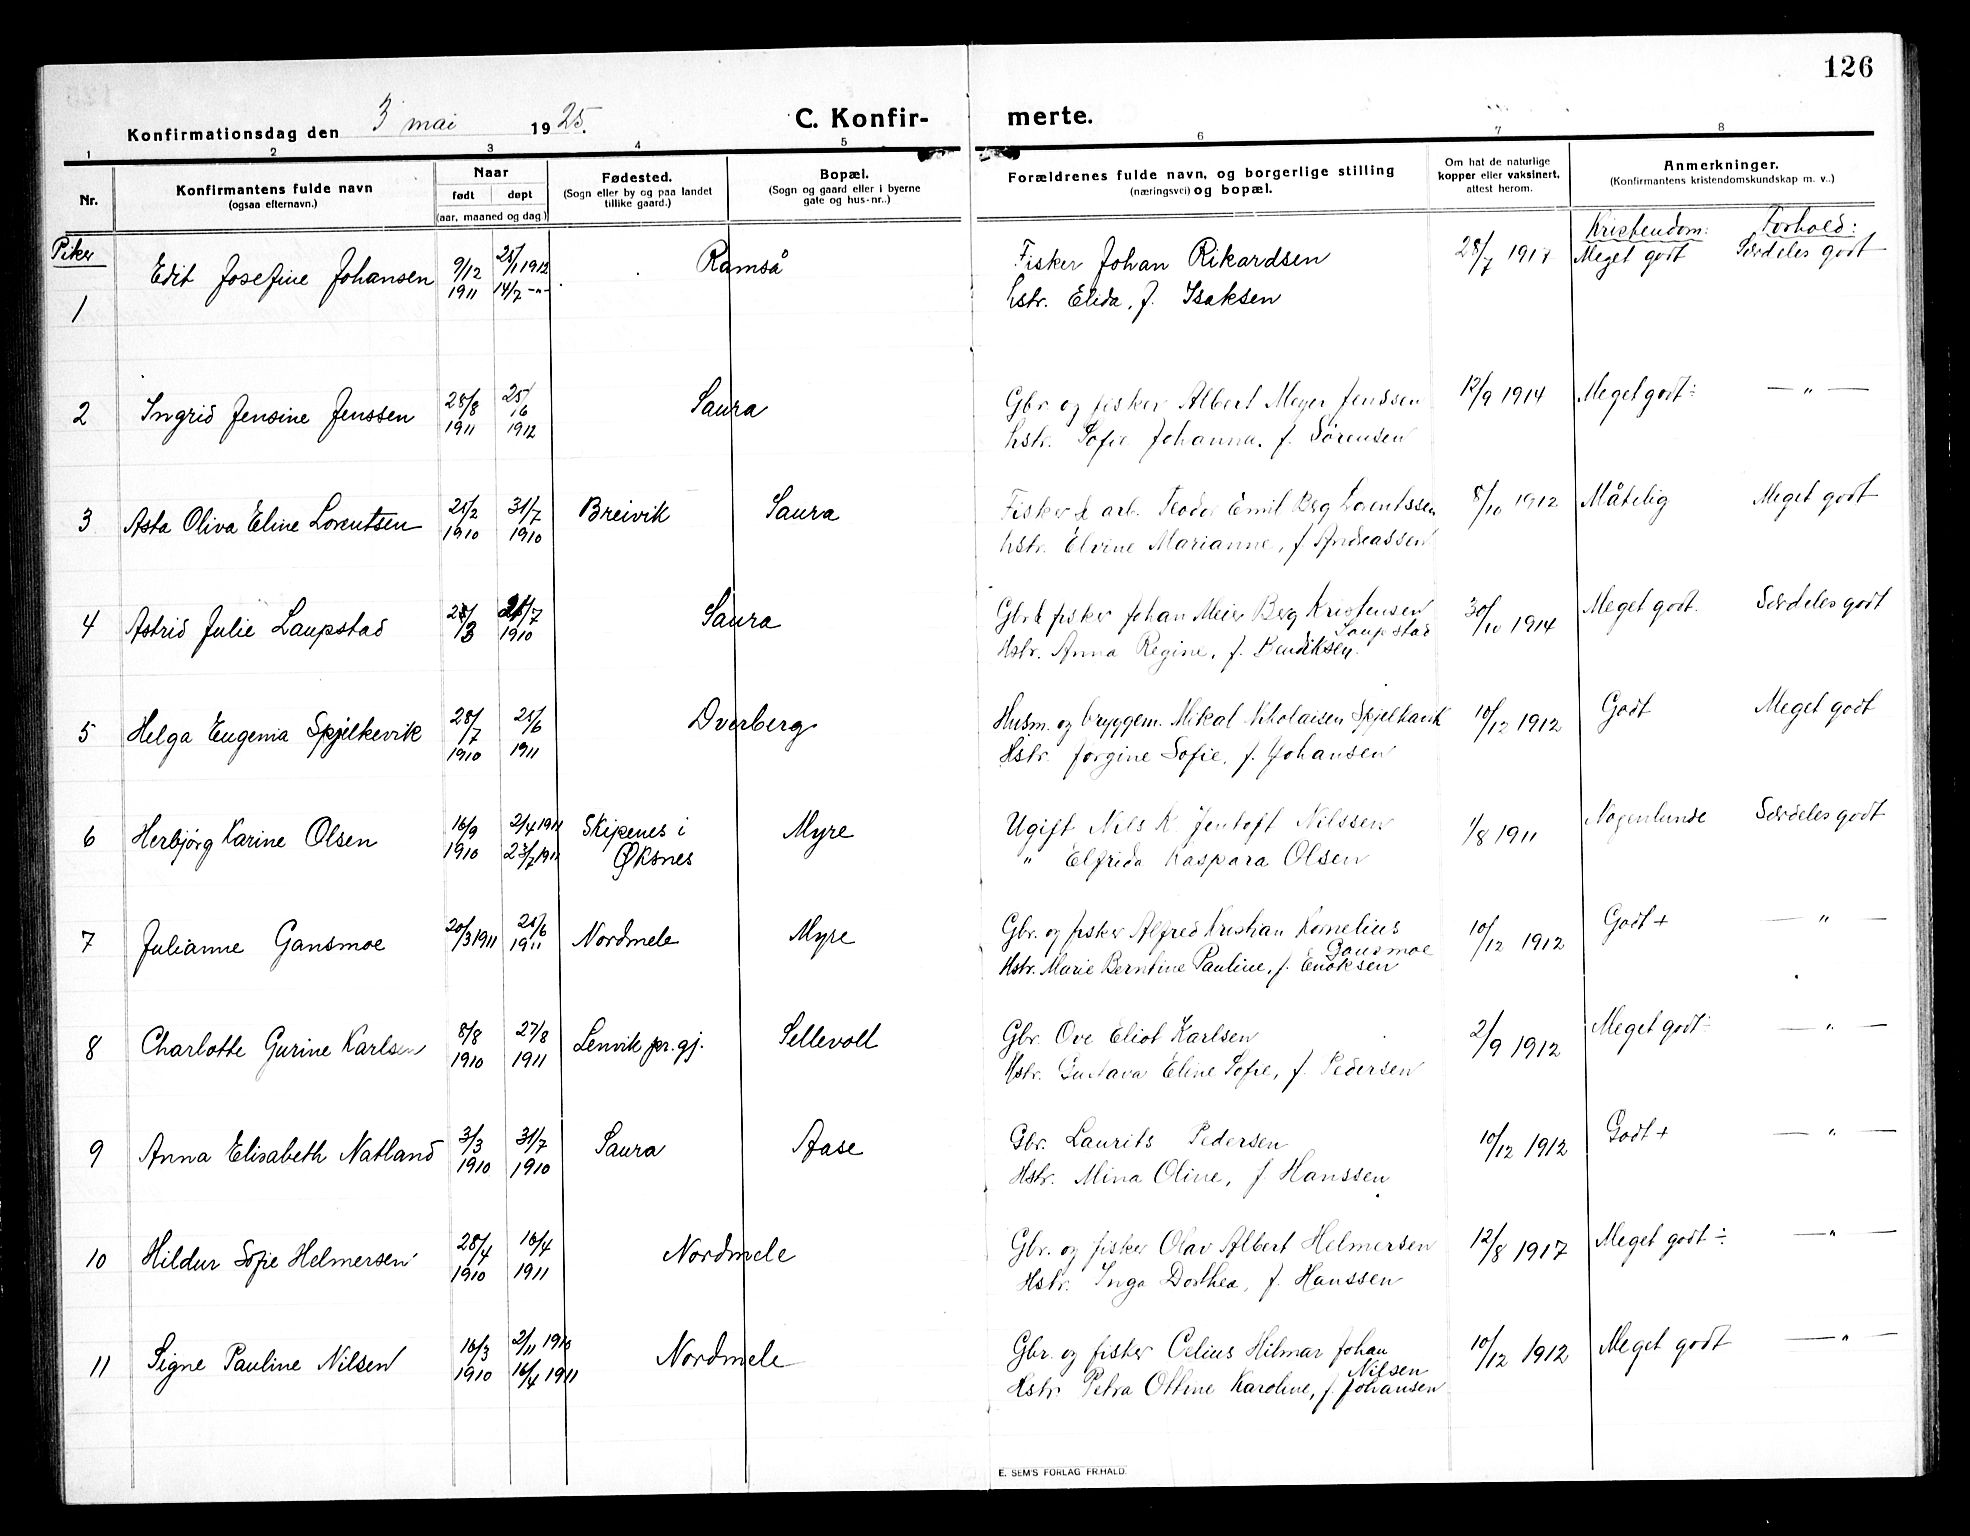 126
Konfirmationsdag den 3 mai 1925.
C. Konfir- merte.
1 2 3 4 5 6 7 8
Nr.
Konfirmantens fulde navn
(ogsaa efternavn.)
Naar
født døpt
(aar, maaned og dag.)
Fødested.
(Sogn eller by og paa landet
tillike gaard.)
Bopæl.
(Sogn og gaard eller i byerne
gate og hus-nr..)
Forældrenes fulde navn, og borgerlige stilling
(næringsvei) og bopæl.
Om hat de naturlige
kopper eller vaksinert,
attest herom.
Anmerkninger.
(Konfirmantens kristendomskundskap m. v..)
Piker
Kristendom: Forhold:
1 Edit Josefine Johansen 9/12 1911 25/1 1912 14/7 -"- Ramså
Fisker Johan Rikardsen
hstr. Elida, f. Isaksen
28/7 1917 Meget godt Særdeles godt
2 Ingrid Jensine Jenssen 28/8 1911 25/16 1912 Saura
Gbr. og fisker Albert Meyer Jenssen
hstr. Sofie Johanna, f. Sørensen
12/9 1914 Meget godt÷ — " —
3 Asta Oliva Eline Lorentsen 25/2 1910 31/7 1910 Breivik Saura
Fisker & arb. Teodor Emil Berg Lorentssen
hstr. Elvine Marianne, f. Andreassen
8/10 1912 Måtelig Meget godt
4 Astrid Julie Laupstad 1910 Saura
Gbr & fisker Johan Meier Berg Kristensen
Laupstad
Hstr. Anna Regine, f. Hendriksen.
30/10 1914 Meget godt. Særdeles godt
5 Helga Eugenia Spjelkevik 28/7 1910 25/6 1911 Dverberg
Husm. og bryggem. Mikal Nikolaisen Spjelkavik
Hstr. Jorgine Sofie, f. Johansen
10/12 1912 Godt Meget godt
6 Herbjørg Karine Olsen 16/9 1910 2/4 1911 23/7 1911 Skipenes i Øksnes Myre
Ugift Nils K. Jentoft Nilssen
" Elfrida Kaspara Olsen
1/8 1911 Nogenlunde Særdeles godt
7 Julianne Gansmoe 20/3 1911 25/6 1911 Nordmele Myre
Gbr. og fisker Alfred Kristian Kornelius
Gansmoe
Hstr. Marie Berntine Pauline, f. Enoksen
10/12 1912 Godt + — " —
8 Charlotte Gurine Karlsen 8/8 1910 27/8 1911 Lenvik pr.gj. Sellevoll
Gbr. Ove Eliot Karlsen
Hstr. Gustava Eline Sofie, f. Pedersen
2/9 1912 Meget godt÷ — " —
9 Anna Elisabeth Natland 3/3 1910 31/7 1910 Saura Aase
Gbr. Laurits Pedersen
Hstr. Mina Oline, f. Hanssen
10/12 1912 Godt + — " —
10 Hildur Sofie Helmersen 28/4 1910 16/4 1911 Nordmele
Gbr. og fisker Olav Albert Helmersen
Hstr. Inga Dorthea, f. Hanssen
12/8 1917 Meget godt ÷ — " —
11 Signe Pauline Nilsen 16/3 1910 2/11 1910 16/4 1911 Nordmele
Gbr. og fisker Celius Hilmar Johan
Nilsen
Hstr Petra Ottine Karoline, f. Johansen
10/12 1912 Meget godt — " —
E. SEM'S FORLAG FR.HALD.